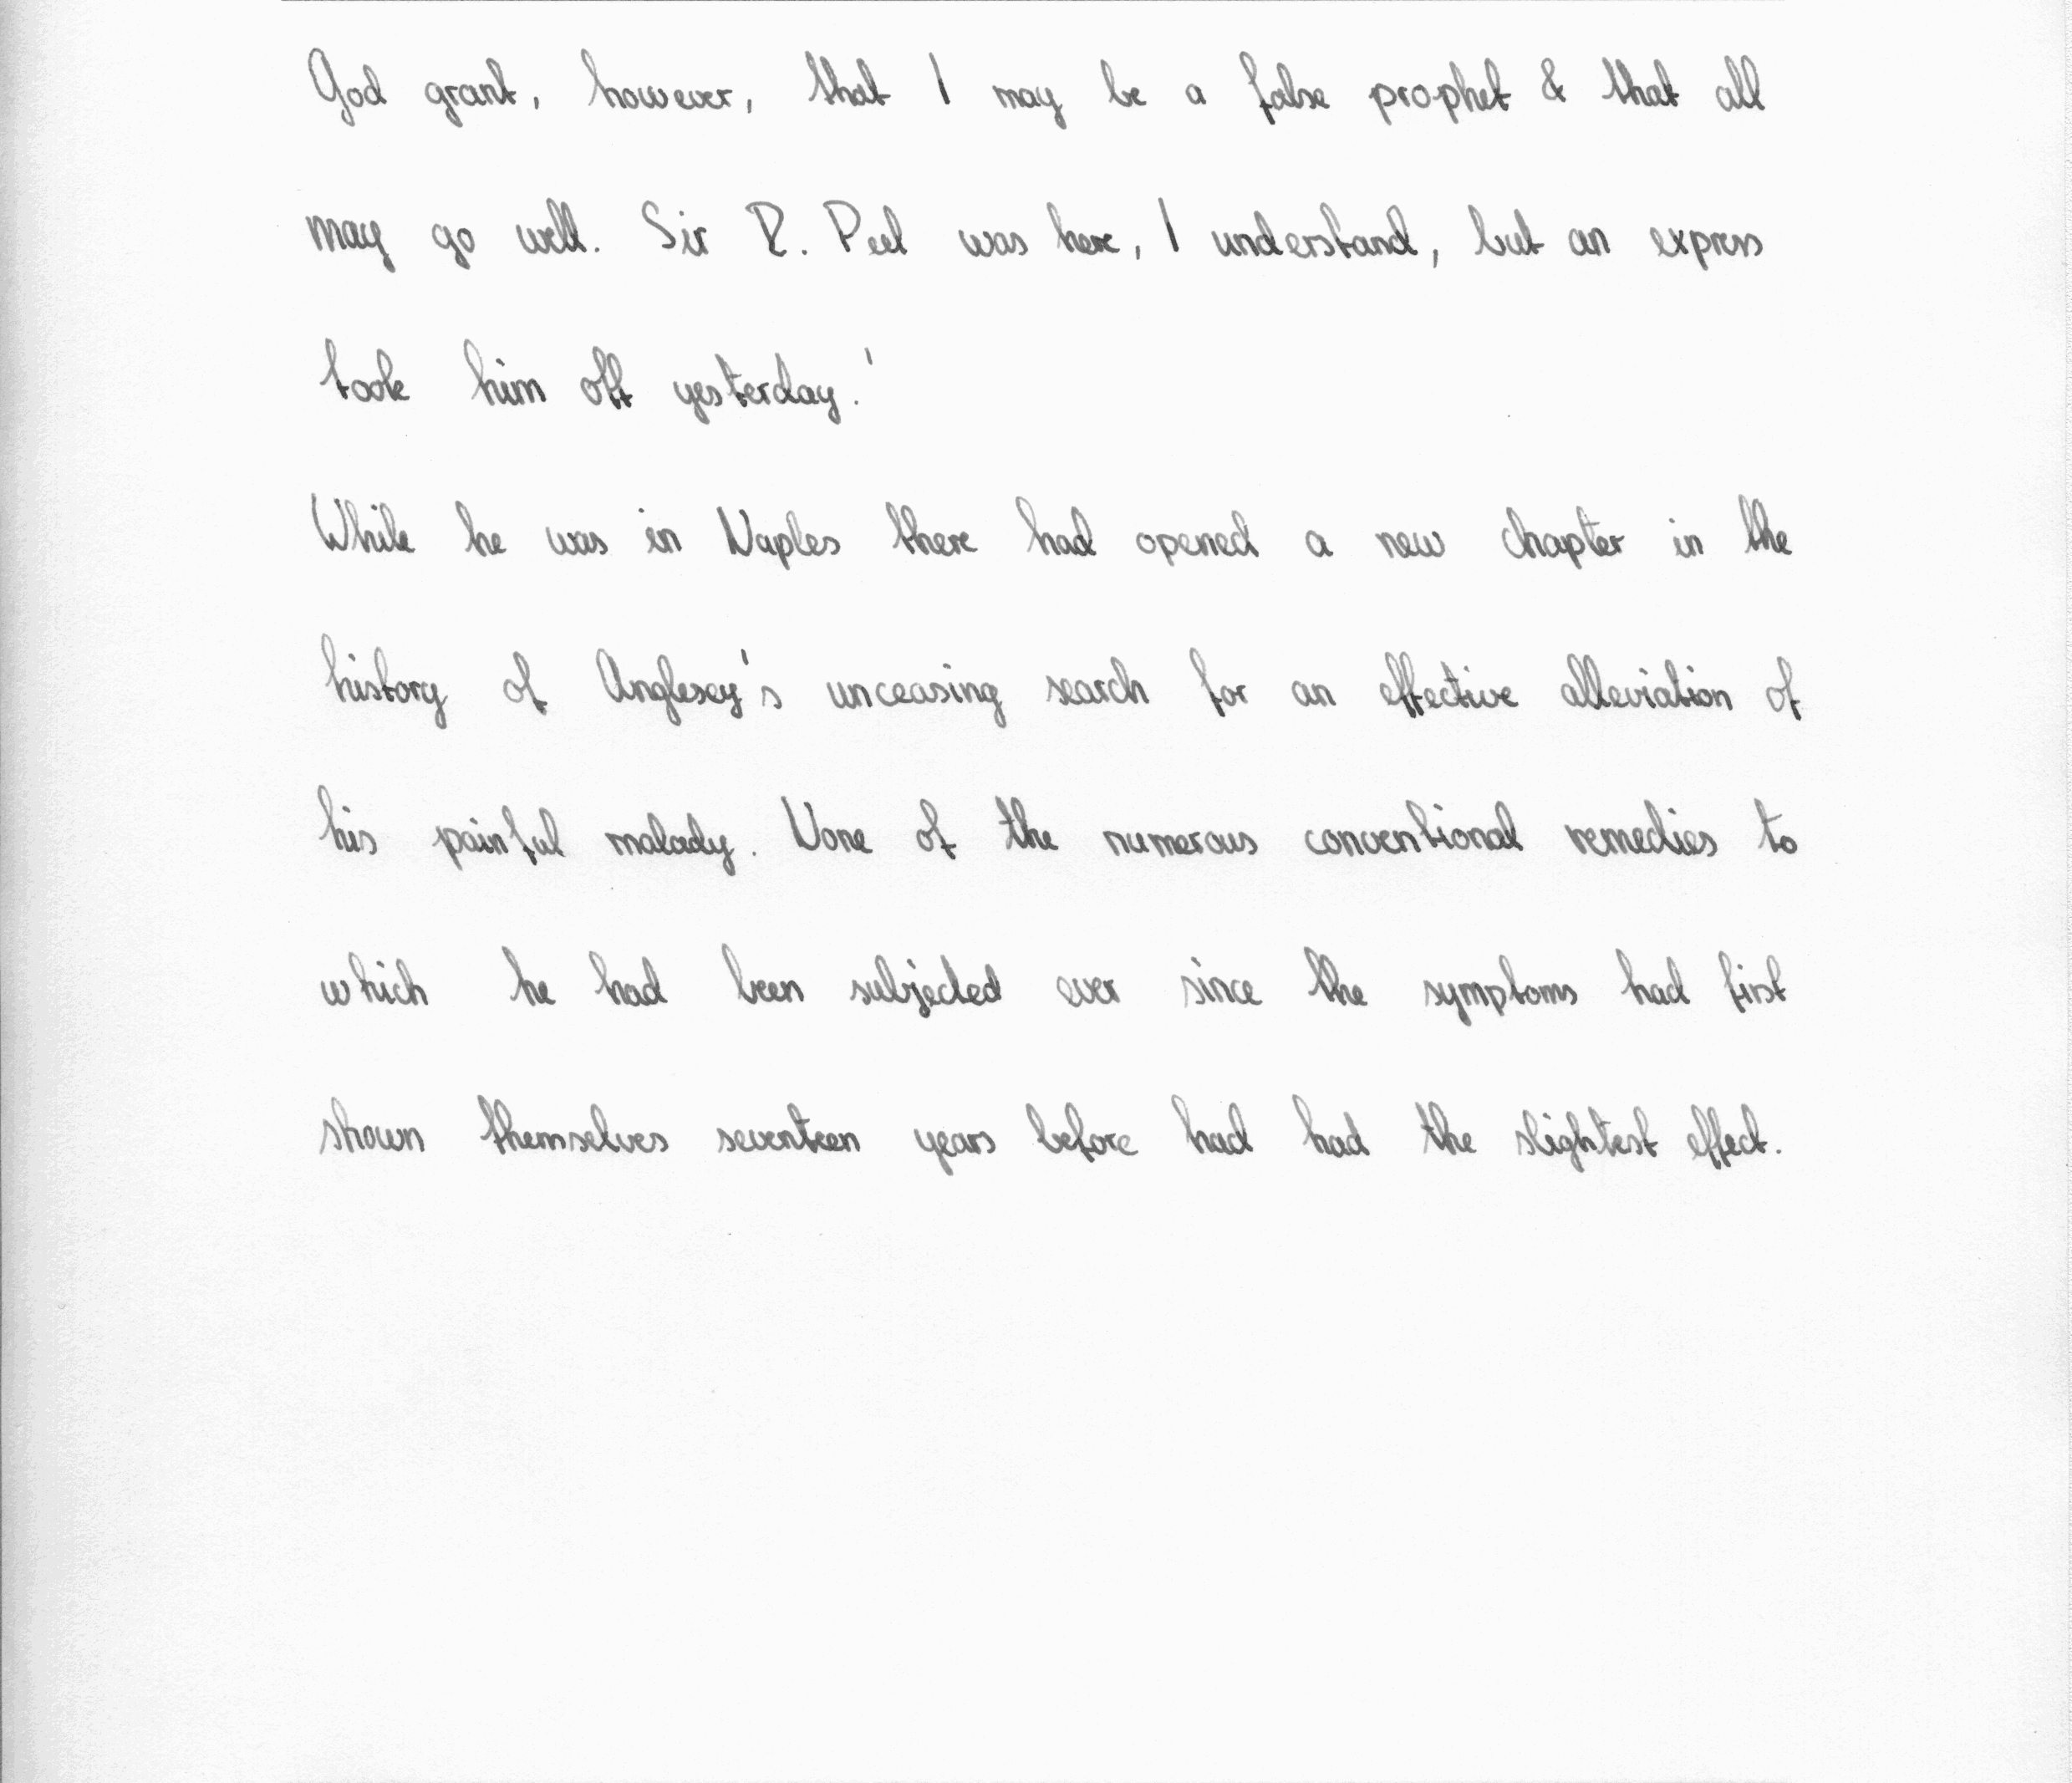 God grant, however, that I may be a false prophet & that all
may go well. Sir R. Peel was here, I understand, but an express
took him off yesterday.'
While he was in Naples there had opened a new chapter in the
history of Anglesey's unceasing search for an effective alleviation of
his painful malady. None of the numerous conventional remedies to
which he had been subjected ever since the symptoms had first
shown themselves seventeen years before had had the slightest effect.